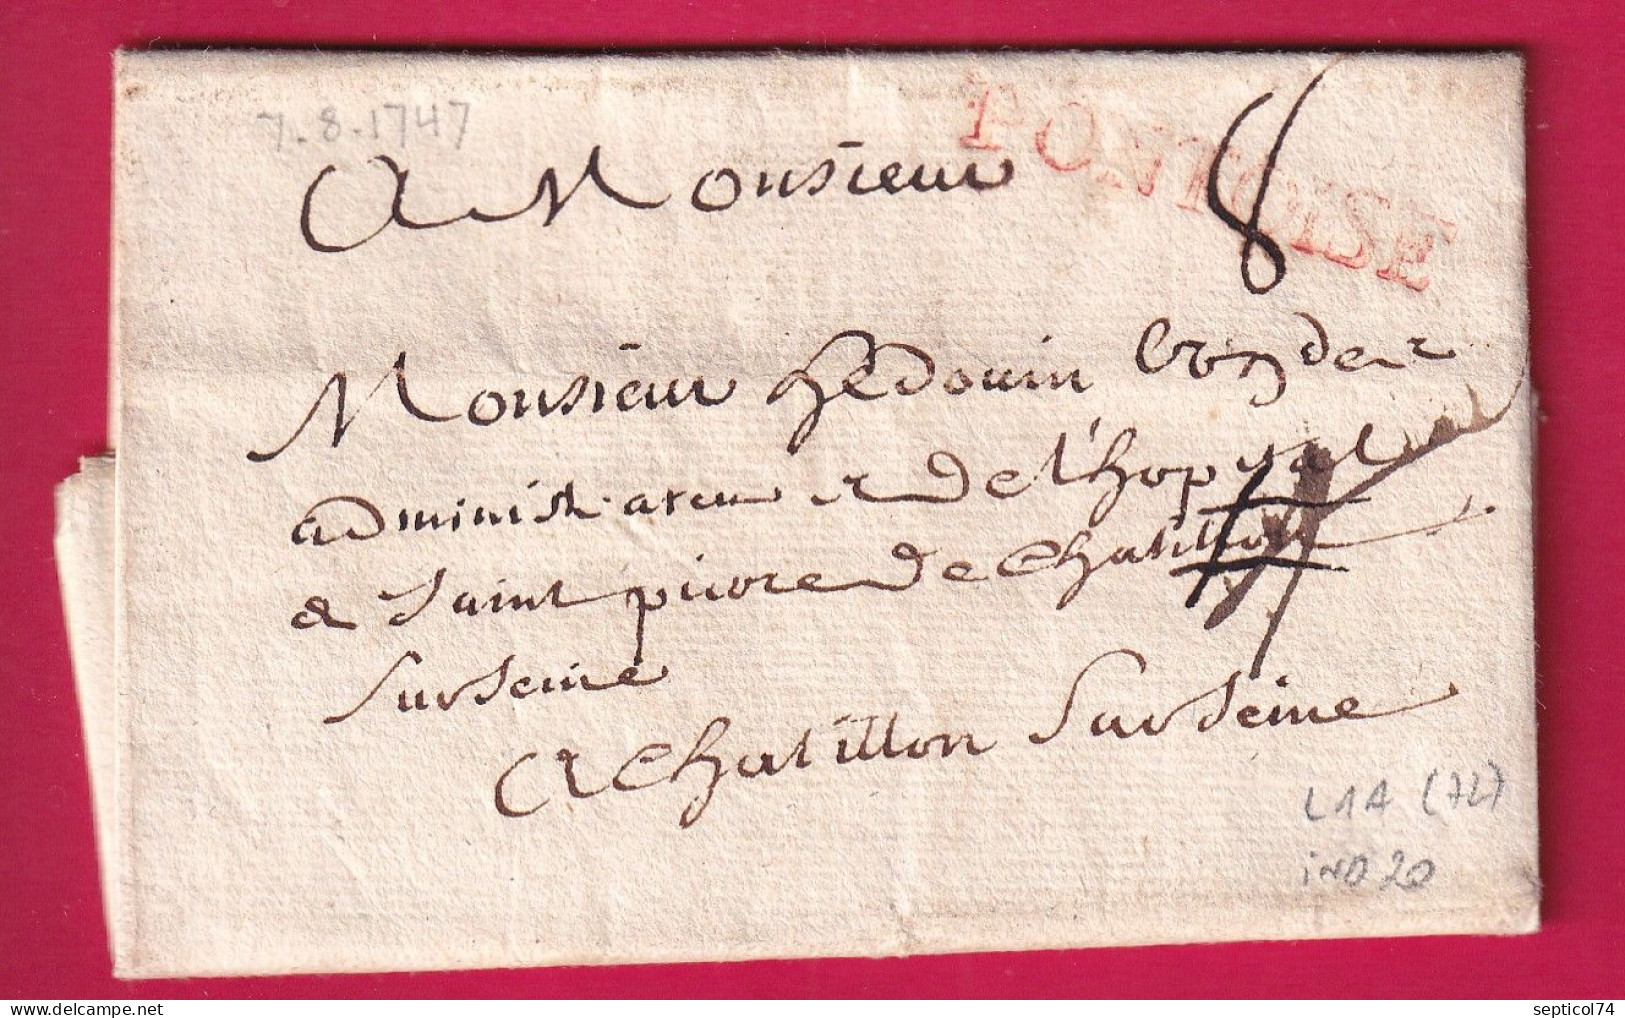 7-8-1747
PONTOISE
A Monsieur 8
Monsieur hedouin
administrateur de l'hopital
& Saint pierre de Chatillon
Sur Seine
A Chatillon Sur Seine
L1A (72)
iND 20
septicol74